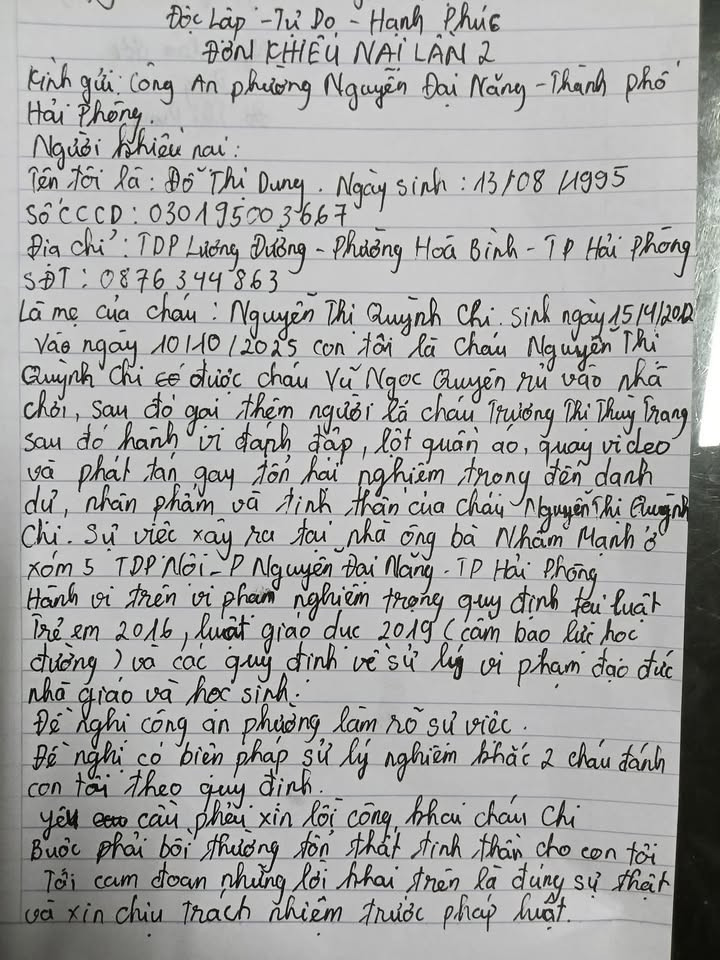 Độc Lập - Tự Do - Hạnh Phúc
ĐƠN KHIẾU NẠI LẦN 2
Kính gửi: Công An phường Nguyễn Đại Năng - Thành phố
Hải Phòng.
Người khiếu nại:
Tên tôi là: Đỗ Thị Dung. Ngày sinh: 13/08/1995
Số CCCD: 030195003667
Địa chỉ: TDP Lương Đường - Phường Hoà Bình - TP Hải Phòng
SĐT: 0876344863
Là mẹ của cháu: Nguyễn Thị Quỳnh Chi. Sinh ngày 15/4/2012
Vào ngày 10/10/2025 con tôi là cháu Nguyễn Thị
Quỳnh Chi có được cháu Vũ Ngọc Quyên rủ vào nhà
chơi, sau đó gọi thêm người là cháu Trương Thị Thuỳ Trang
sau đó hành vi đánh đập, lột quần áo, quay video
và phát tán gay tổn hại nghiêm trọng đến danh
dự, nhân phẩm và tinh thần của cháu Nguyễn Thị Quỳnh
Chi. Sự việc xảy ra tại nhà ông bà Nhâm Mạnh ở
xóm 5 TDP Nội - P Nguyễn Đại Năng - TP Hải Phòng
Hành vi trên vi phạm nghiêm trọng quy định tại luật
Trẻ em 2016, luật giáo dục 2019 (cấm bạo lực học
đường) và các quy định về sử lý vi phạm đạo đức
nhà giáo và học sinh.
Đề nghị công an phường làm rõ sự việc.
Đề nghị có biện pháp sử lý nghiêm khắc 2 cháu đánh
con tôi theo quy định.
yêu cầu phải xin lỗi công khai cháu Chi
Buộc phải bồi thường tổn thất tinh thần cho con tôi
Tôi cam đoan những lời khai trên là đúng sự thật
và xin chịu trách nhiệm trước pháp luật.